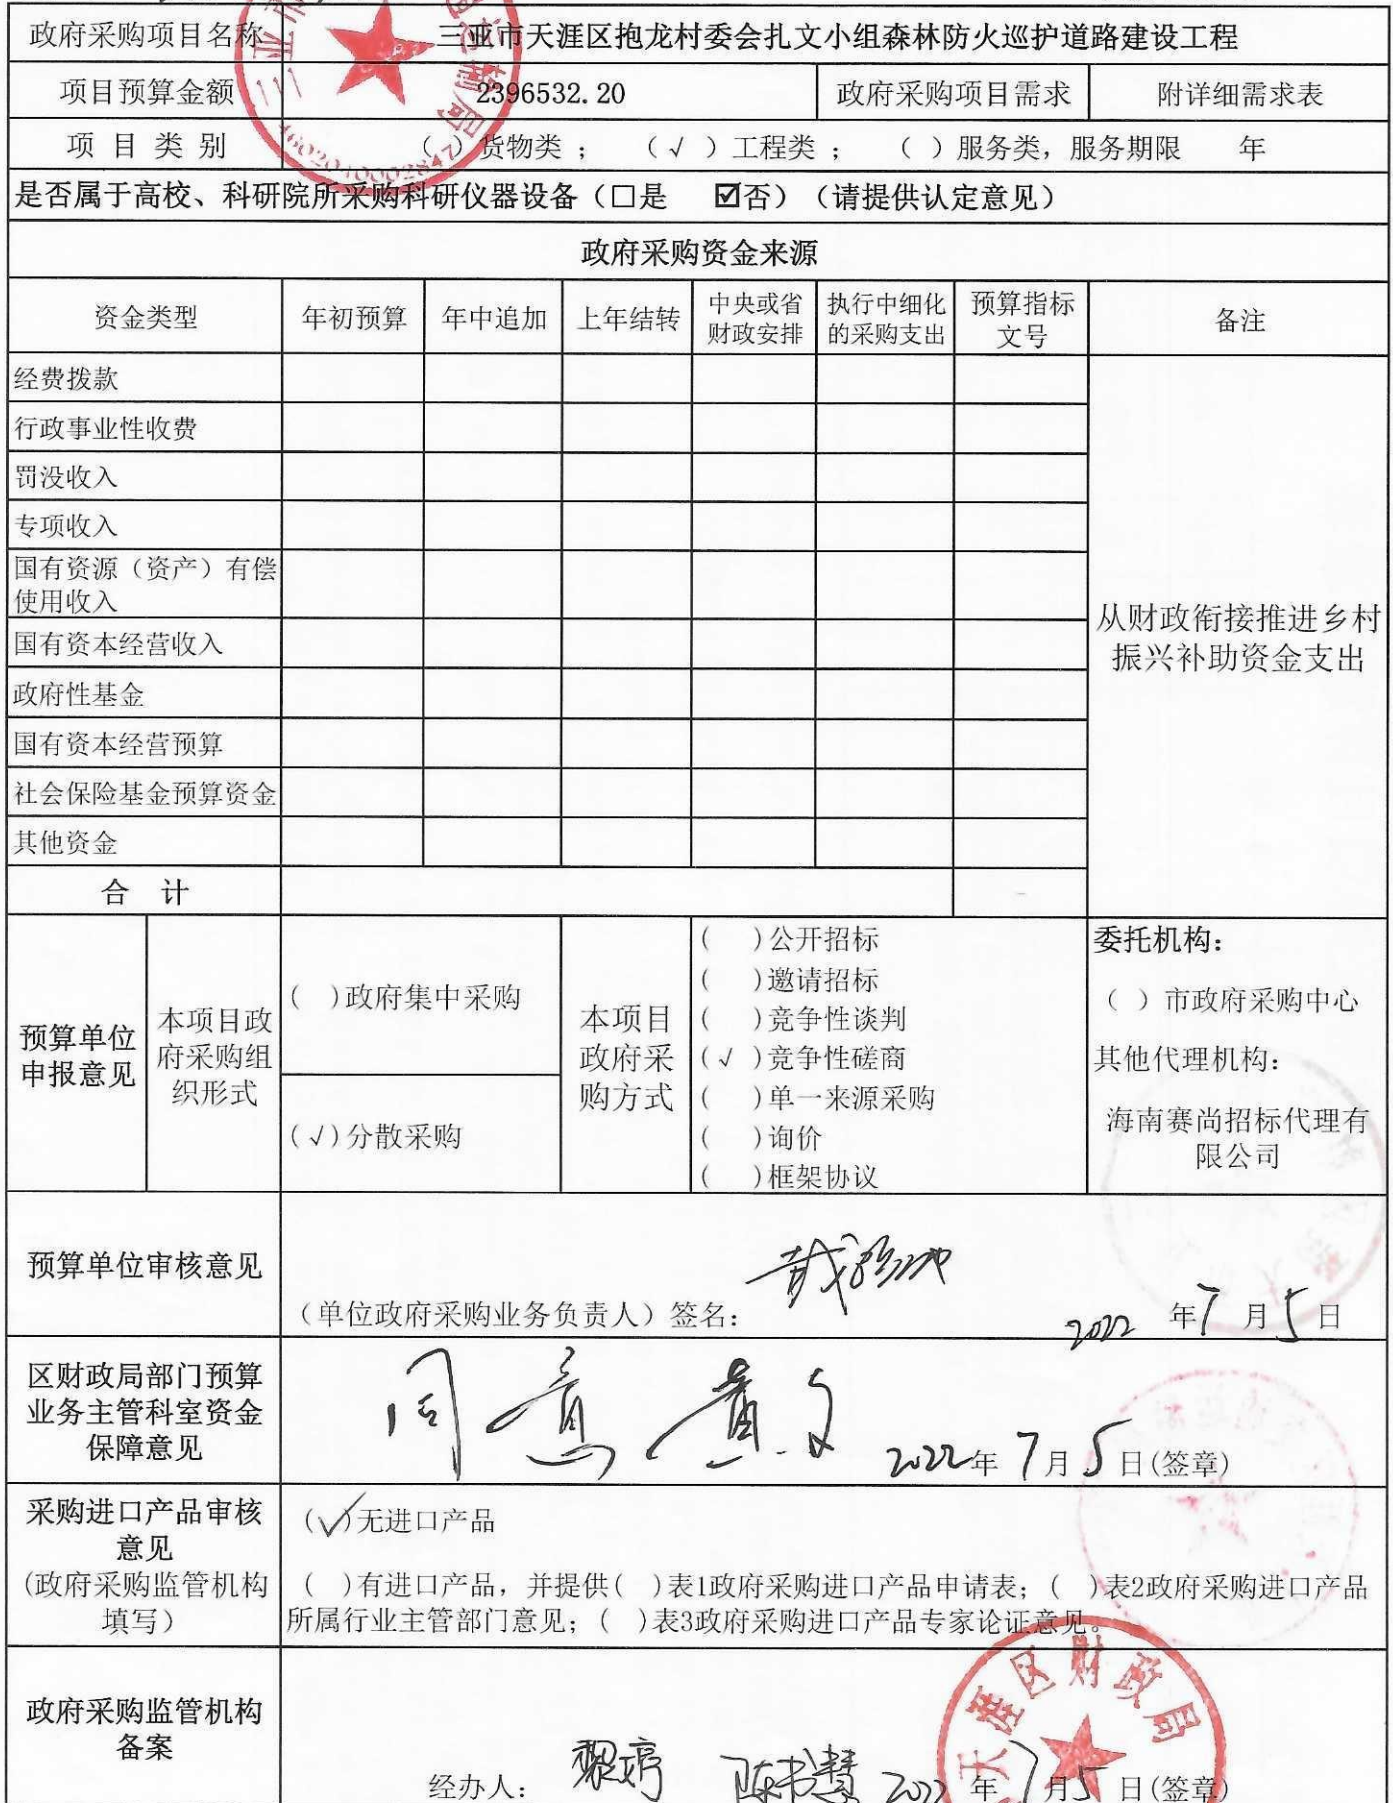 政府采购项目名称 三亚市天涯区抱龙村委会扎文小组森林防火巡护道路建设工程
项目预算金额 2396532.20 政府采购项目需求 附详细需求表
项 目 类 别 （ ）货物类； （√ ）工程类； （ ）服务类，服务期限 年
是否属于高校、科研院所采购科研仪器设备（□是 ☑否）（请提供认定意见）
政府采购资金来源
资金类型 年初预算 年中追加 上年结转 中央或省财政安排 执行中细化的采购支出 预算指标文号 备注
经费拨款
行政事业性收费
罚没收入
专项收入
国有资源（资产）有偿
使用收入
国有资本经营收入
政府性基金
国有资本经营预算
社会保险基金预算资金
其他资金
从财政衔接推进乡村
振兴补助资金支出
合 计
预算单位
申报意见
本项目政
府采购组
织形式
( )政府集中采购
(√)分散采购
本项目
政府采
购方式
( )公开招标
( )邀请招标
( )竞争性谈判
(√ )竞争性磋商
( )单一来源采购
( )询价
( )框架协议
委托机构：
（ ）市政府采购中心
其他代理机构：
海南赛尚招标代理有
限公司
预算单位审核意见
（单位政府采购业务负责人）签名： 2022 年7 月5 日
区财政局部门预算
业务主管科室资金
保障意见
同意 2022年 7月5日(签章)
采购进口产品审核
意见
(政府采购监管机构
填写）
(√)无进口产品
( )有进口产品，并提供( )表1政府采购进口产品申请表；( )表2政府采购进口产品
所属行业主管部门意见；( )表3政府采购进口产品专家论证意见。
政府采购监管机构
备案
经办人： 黎婷 陈书慧 2022 年7月5日(签章)
天涯区财政局
4602040002847